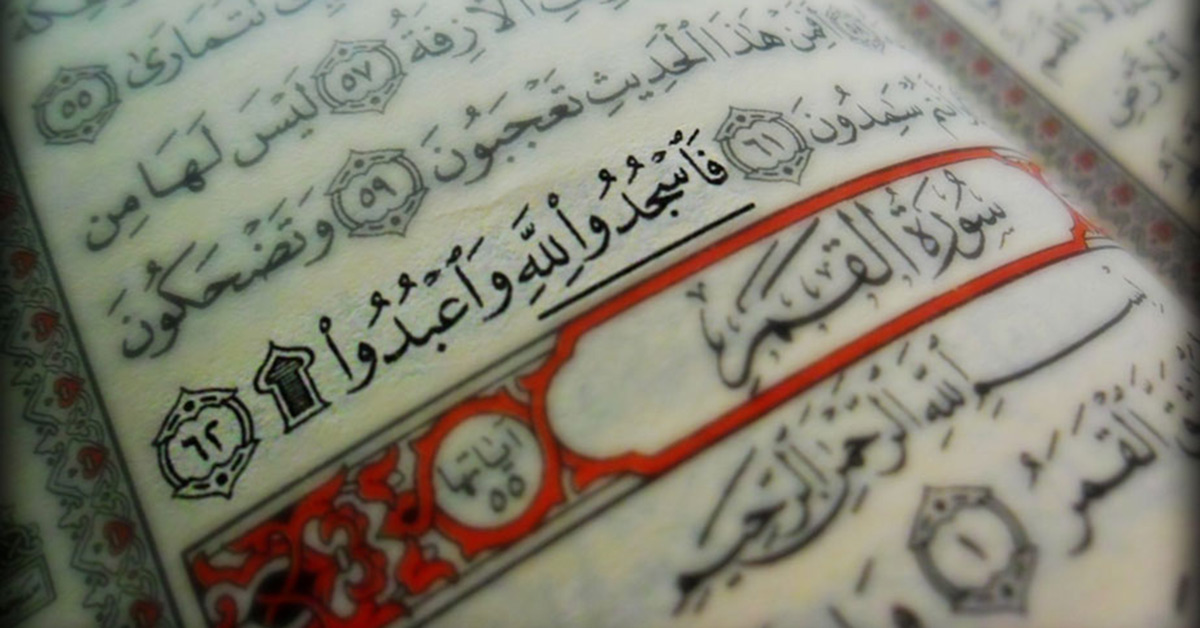 تَتَمَارَىٰ ٥٥
ٱلْأَزِفَةُ ٥٧ لَيْسَ لَهَا مِن
أَفَمِنْ هَٰذَا ٱلْحَدِيثِ تَعْجَبُونَ ٥٩ وَتَضْحَكُونَ
وَأَنتُمْ سَٰمِدُونَ ٦١ فَٱسْجُدُوا۟ لِلَّهِ وَٱعْبُدُوا۟ ۩ ٦٢
سُورَةُ القَمَرِ
آيَاتُهَا ٥٥
بِسْمِ ٱللَّهِ ٱلرَّحْمَٰنِ ٱلرَّحِيمِ
ٱلْقَمَرُ ١